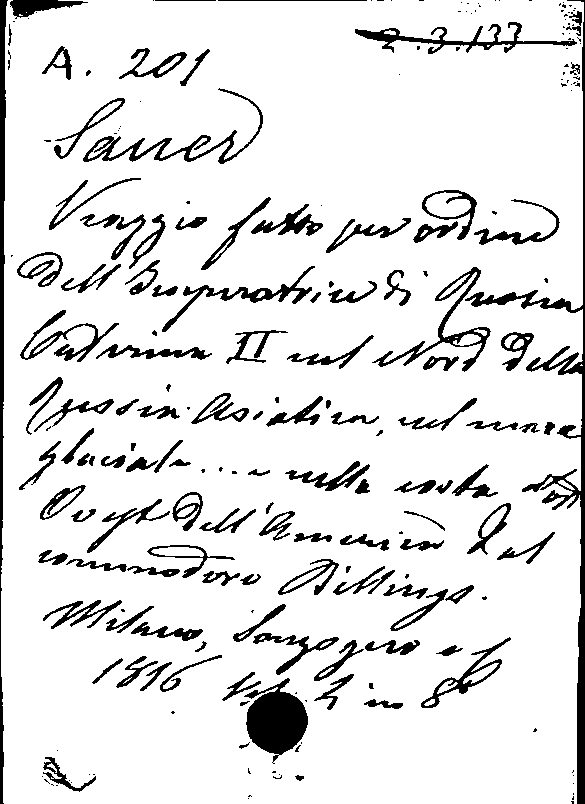 2.3.133
A. 201
Sauer
Viaggio fatto per ordine
dell'Imperatrice di Russia
Caterina II nel Nord della
Russia Asiatica, nel mare
glaciale... e nella costa
Ovest dell'America dal
commodoro Billings.
Milano, Sonzogno e C
1816 Vol. 2 in 8°